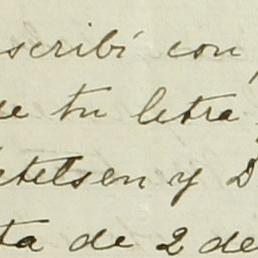 scribí con
de tu letra
etelsen y D
ta de 2 de